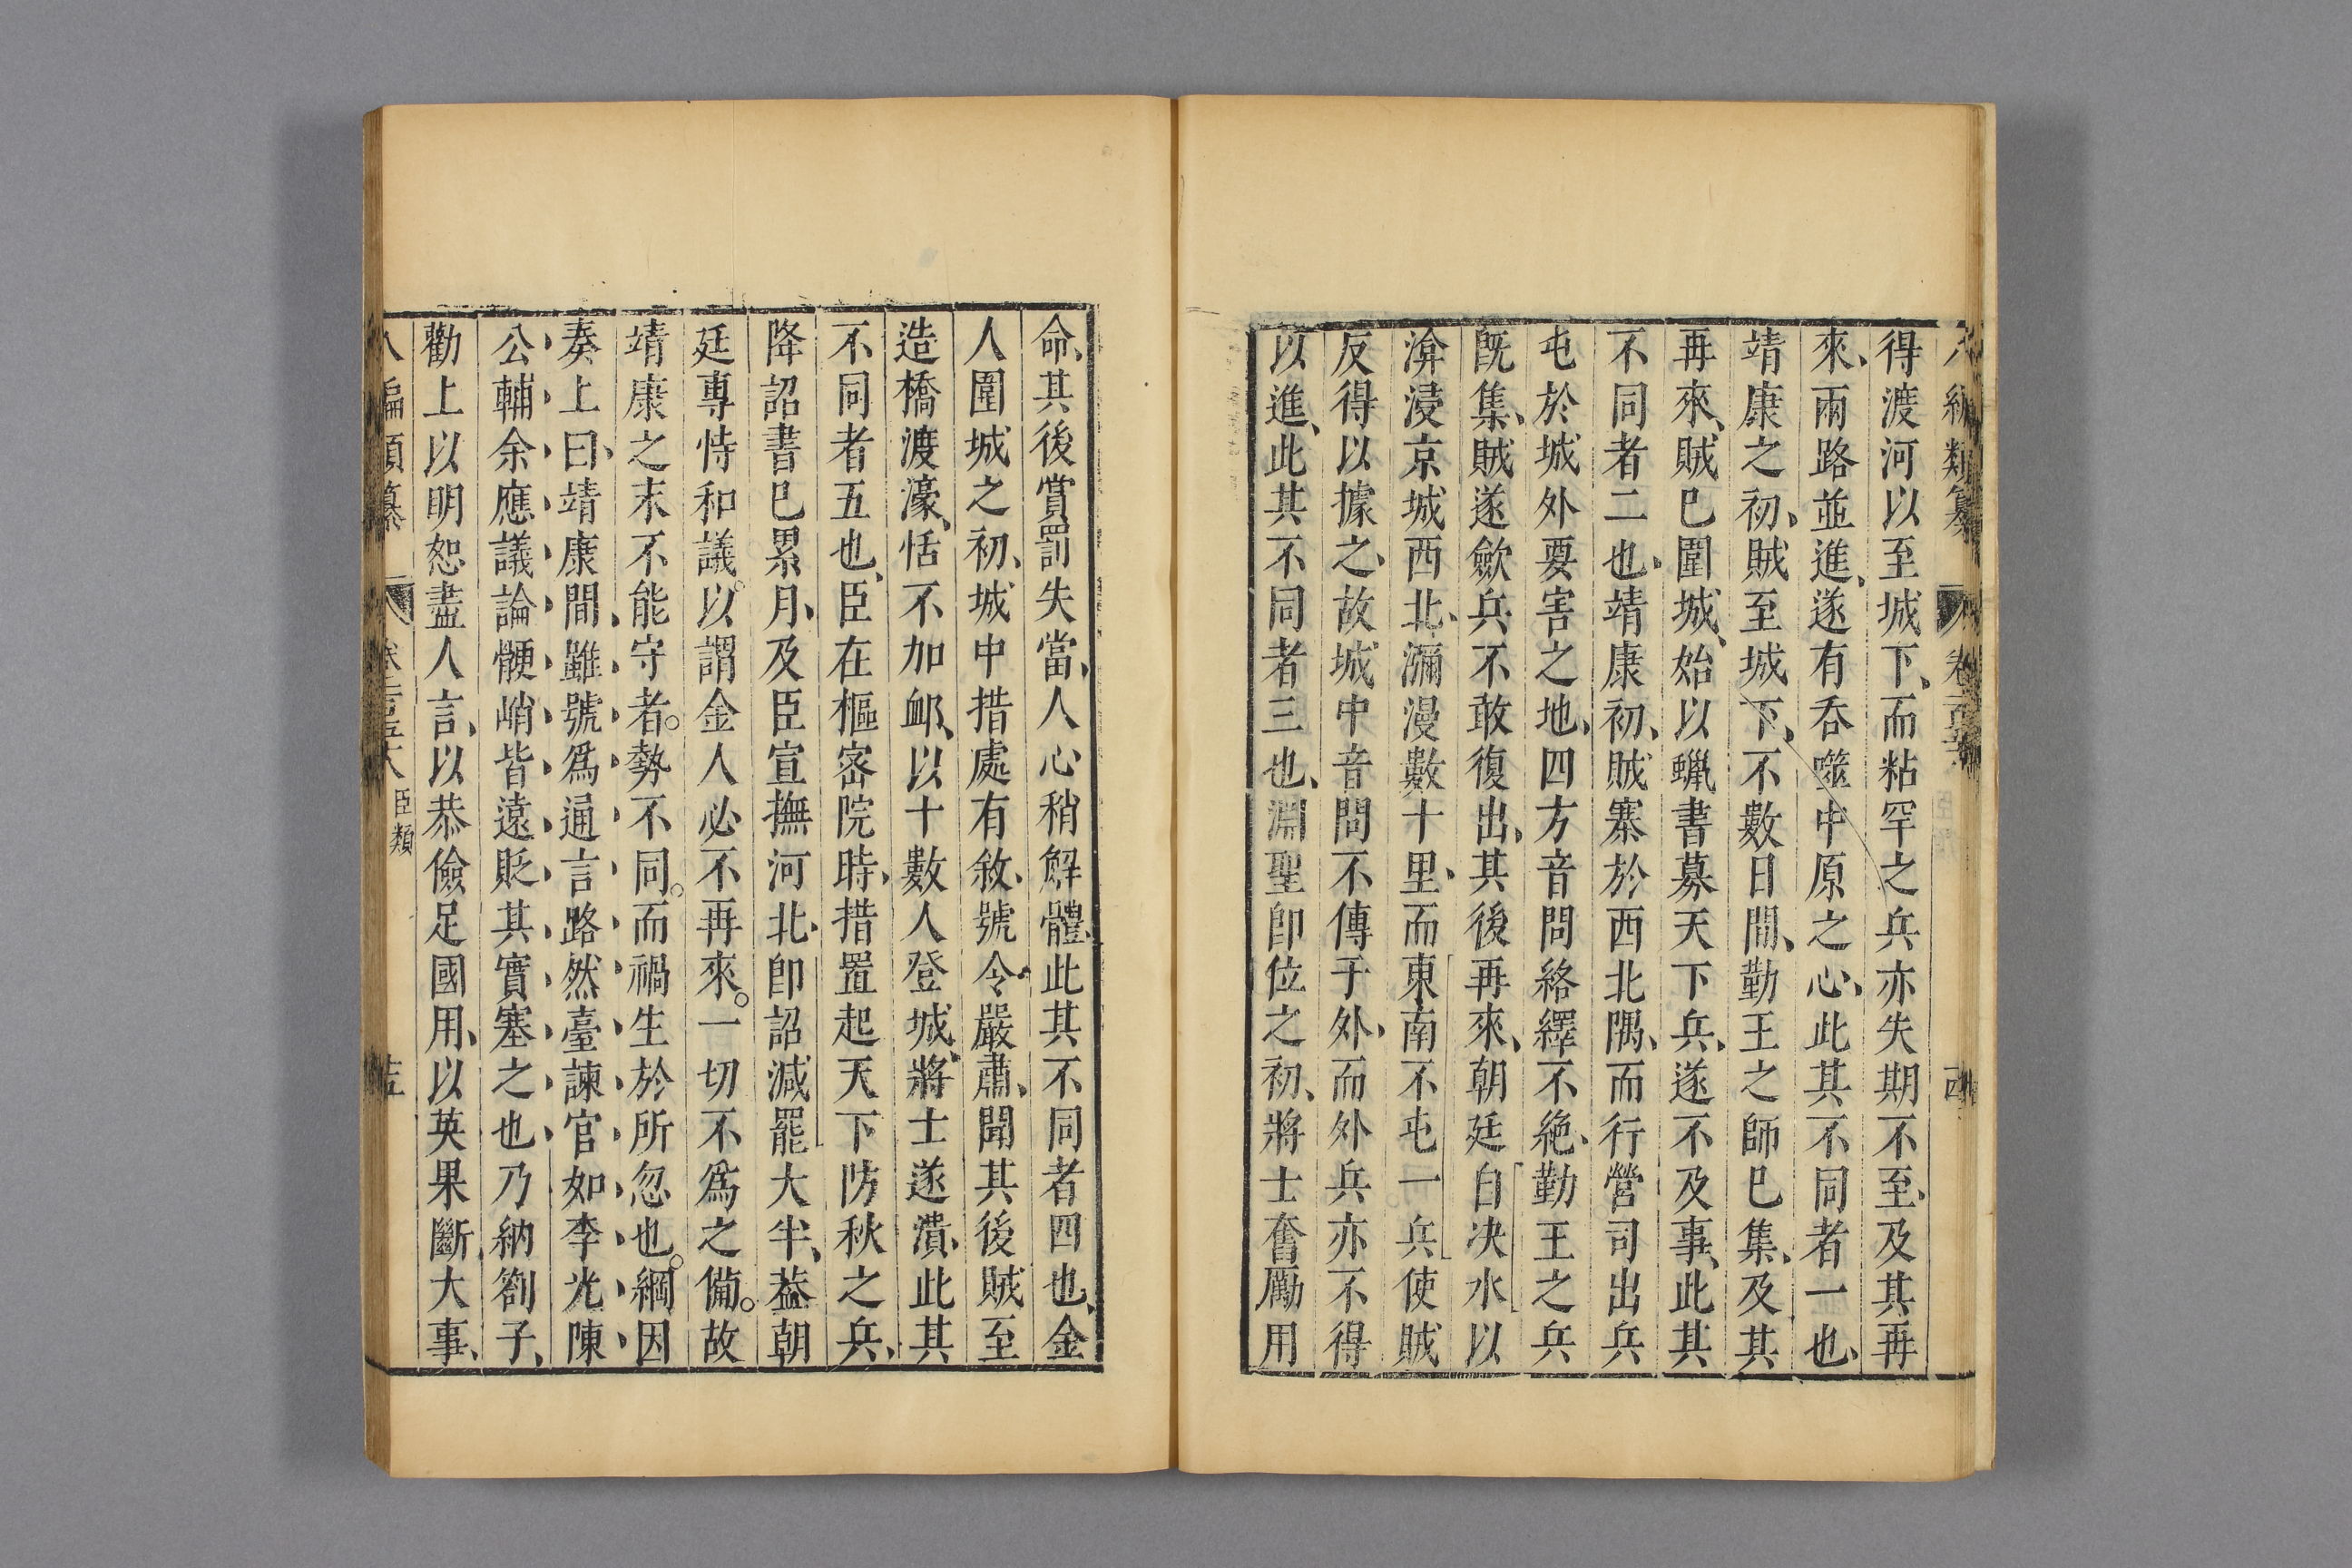 八編類纂 卷 臣
得渡河以至城下、而粘罕之兵亦失期不至、及其再
來、兩路並進、遂有吞噬中原之心、此其不同者一也、
靖康之初、賊至城下、不數日間、勤王之師已集、及其
再來、賊已圍城、始以蠟書募天下兵、遂不及事、此其
不同者二也、靖康初、賊寨於西北隅、而行營司出兵
屯於城外要害之地、四方音問絡繹不絶、勤王之兵
旣集、賊遂歛兵不敢復出、其後再來、朝廷自决水以
渰浸京城西北、瀰漫數十里、而東南不屯一兵使賊
反得以據之、故城中音問不傳于外、而外兵亦不得
以進、此其不同者三也、淵聖卽位之初、將士奮勵用
命、其後賞罰失當、人心稍解體、此其不同者四也、金
人圍城之初、城中措處有敘、號令嚴肅、聞其後賊至
造橋渡濠、恬不加衈、以十數人登城、將士遂潰、此其
不同者五也、臣在樞宻院時、措置起天下防秋之兵、
降詔書已累月、及臣宣撫河北、卽詔減罷大半、葢朝
廷專恃和議。以謂金人必不再來。一切不爲之備。故
靖康之末不能守者。勢不同。而禍生於所忽也。綱因
奏上曰、靖康間、雖號爲通言路、然臺諫官如李光、陳
公輔、余應議論骾峭、皆遠貶、其實塞之也、乃納劄子、
勸上以明恕盡人言、以恭儉足國用、以英果斷大事、
八編類纂 臣類